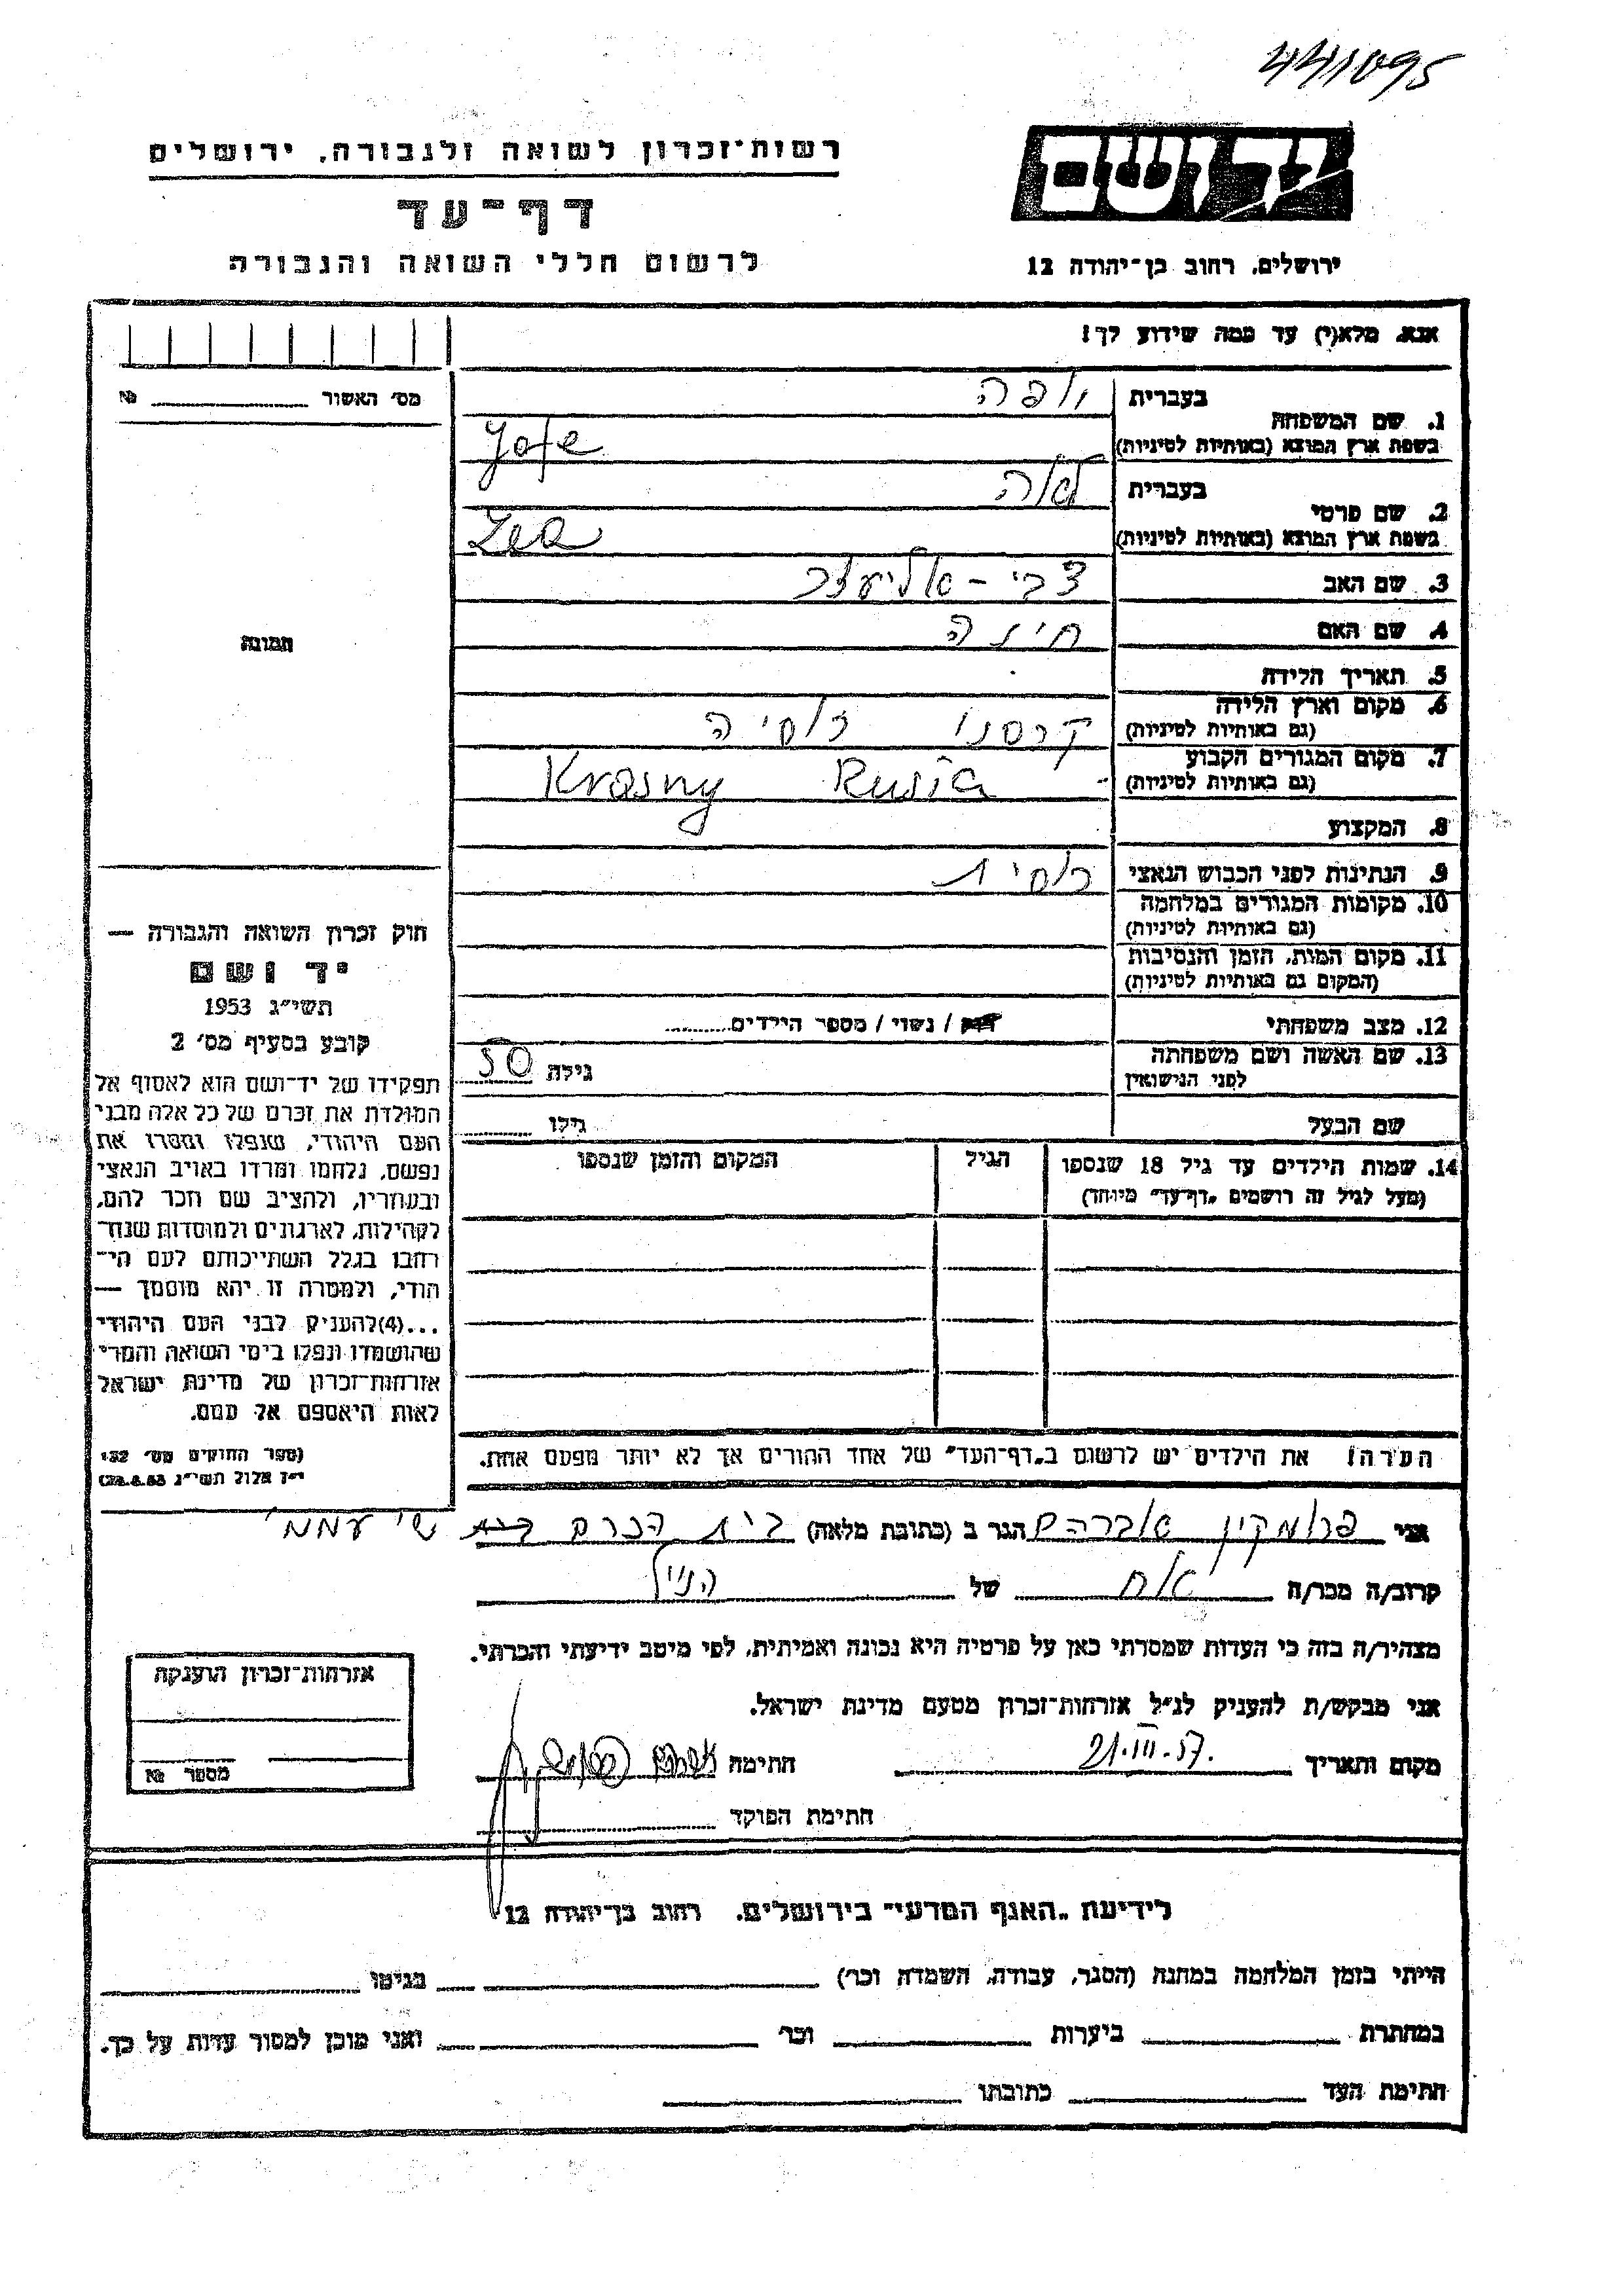 441095
רשות־זכרון לשואה ולגבורה, ירושלים
דף־עד
לרשום חללי השואה והגבורה
יד ושם
ירושלים, רחוב בן־יהודה 12
אנא, מלא(י) עד כמה שידוע לך!
מס׳ האשור № 
1. שם המשפחה
בעברית יופה
בשפת ארץ המוצא (באותיות לטיניות) Jofe
2. שם פרטי
בעברית לאה
בשפת ארץ המוצא (באותיות לטיניות) Lea
3. שם האב צבי - אליעזר
4. שם האם חינה
תמונה
5. תאריך הלידה
6. מקום וארץ הלידה
(גם באותיות לטיניות) קרסנו רוסיה
7. מקום המגורים הקבוע
(גם באותיות לטיניות) Krasny Rusia
8. המקצוע
9. הנתינות לפני הכבוש הנאצי רוסית
10. מקומות המגורים במלחמה
(גם באותיות לטיניות)
11. מקום המות, הזמן והנסיבות
(המקום גם באותיות לטיניות)
12. מצב משפחתי / נשוי / מספר הילדים
13. שם האשה ושם משפחתה
לפני הנישואין גילה 50
שם הבעל גילו
14. שמות הילדים עד גיל 18 שנספו הגיל המקום והזמן שנספו
(מעל לגיל זה רושמים „דף־עד״ מיוחד)
חוק זכרון השואה והגבורה —
יד ושם
תשי״ג 1953
קובע בסעיף מס׳ 2
תפקידו של יד־ושם הוא לאסוף אל
המולדת את זכרם של כל אלה מבני
העם היהודי, שנפלו ומסרו את
נפשם, נלחמו ומרדו באויב הנאצי
ובעוזריו, ולהציב שם וזכר להם,
לקהילות, לארגונים ולמוסדות שנח־
רבו בגלל השתייכותם לעם הי־
הודי, ולמטרה זו יהא מוסמך —
...(4)להעניק לבני העם היהודי
שהושמדו ונפלו בימי השואה והמרי
אזרחות־זכרון של מדינת ישראל
לאות היאספם אל עמם.
(ספר החוקים מס׳ 132
י״ז אלול תשי״ג 28.8.53)
הערה! את הילדים יש לרשום ב„דף־העד״ של אחד ההורים אך לא יותר מפעם אחת.
אני פרומקין אברהם הגר ב (כתובת מלאה) בית הכרם בית ש״י עממי
קרוב/ה מכר/ה אח של הנ״ל
מצהיר/ה בזה כי העדות שמסרתי כאן על פרטיה היא נכונה ואמיתית, לפי מיטב ידיעתי והכרתי.
אני מבקש/ת להעניק לנ״ל אזרחות־זכרון מטעם מדינת ישראל.
מקום ותאריך 21.III.57. חתימה
חתימת הפוקד
אזרחות־זכרון הוענקה
מספר №
לידיעת „האגף המדעי״ בירושלים, רחוב בן־יהודה 12
הייתי בזמן המלחמה במחנה (הסגר, עבודה, השמדה וכו׳) בגיטו
במחתרת ביערות וכו׳ ואני מוכן למסור עדות על כך.
חתימת העד כתובתו